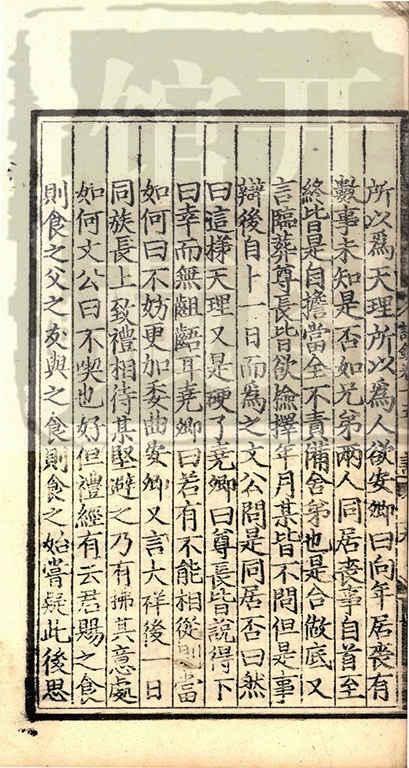 所以為天理所以為人欲安卿曰向年居喪有
數事未知是否如兄弟兩人同居喪事自首至
終皆是自擔當全不責備舍弟也是合做底又
言臨葬尊長皆欲檢擇年月某皆不問但是事
辦後自卜一日而為之文公問是同居否曰然
曰這様天理又是硬了堯卿曰尊長皆說得下
曰幸而無齟齬耳堯卿曰若有不能相從則當
如何曰不妨更加委曲安卿又言大祥後一日
同族長上致禮相待某堅避之乃有拂其意處
如何文公曰不喫也好但禮經有云君賜之食
則食之父之友與之食則食之始嘗疑此後思